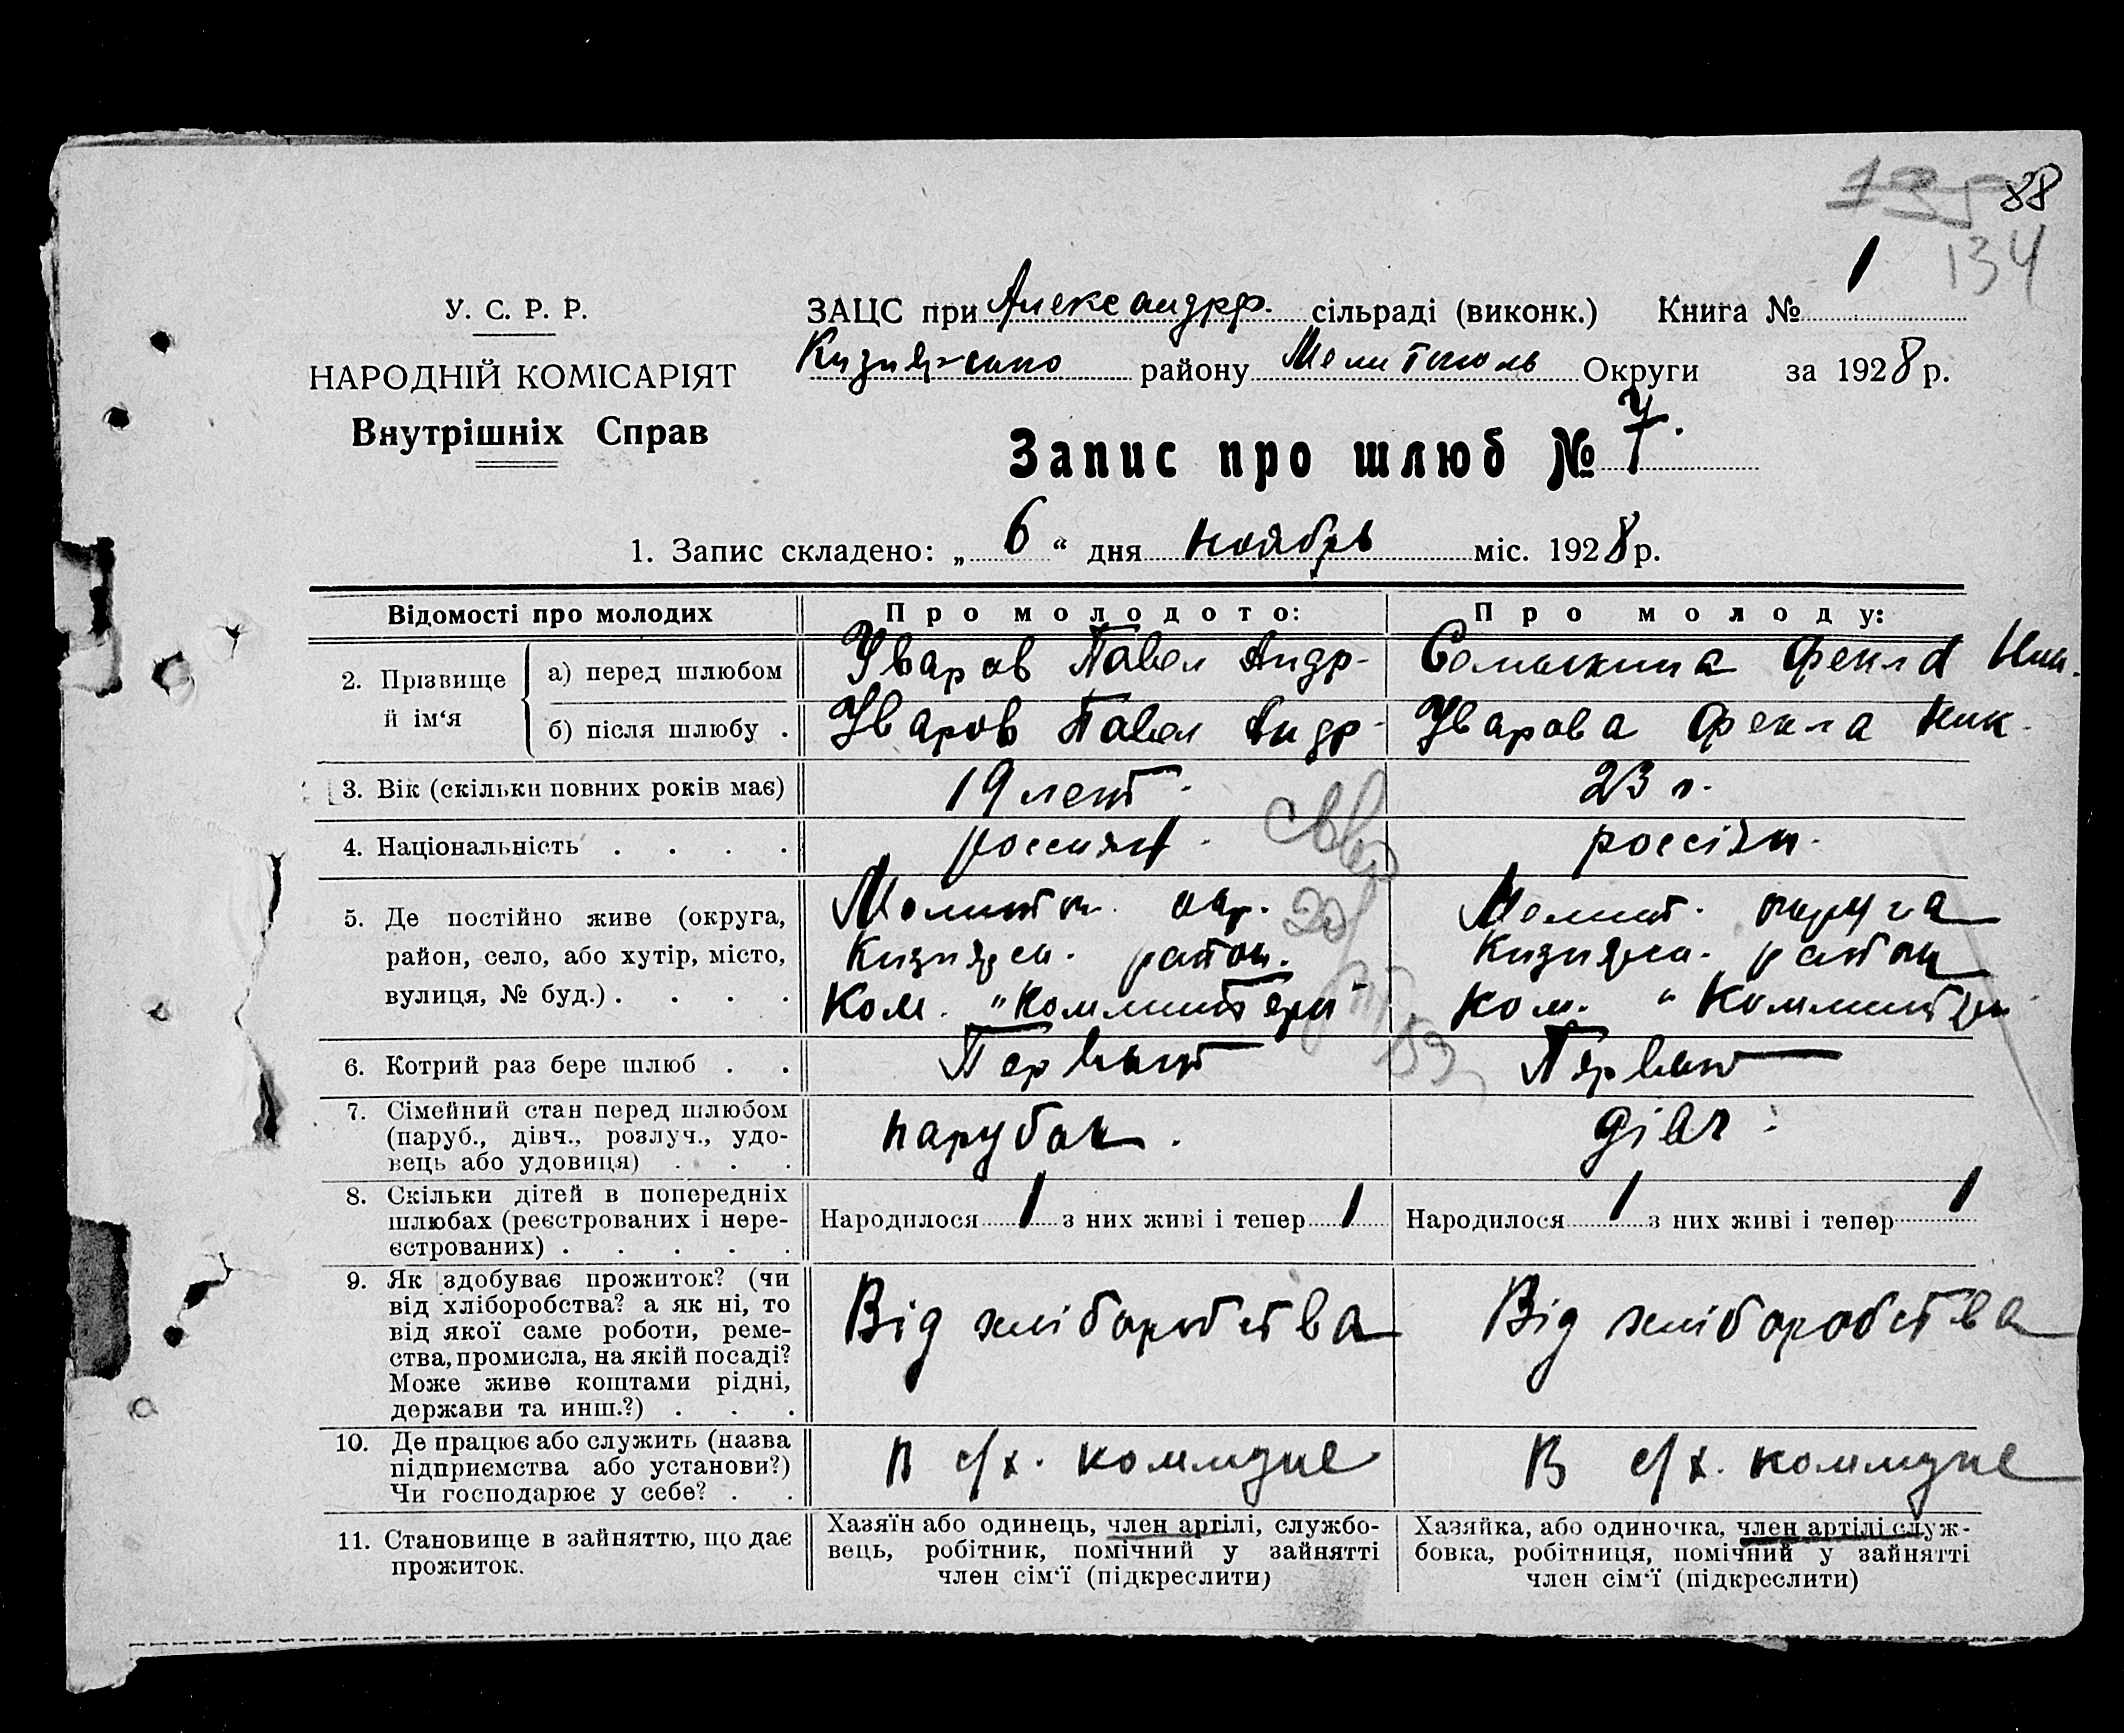 135 88
134
У. С. Р. Р.
НАРОДНІЙ КОМІСАРІЯТ
Внутрішніх Справ
ЗАЦС при Александрф. сільраді (виконк.) Книга № 1
району Мелитополь Округи за 1928 р.
Запис про шлюб № 7.
1. Запис складено: „ 6 “ дня ноябрь міс. 1928 р.
Відомості про молодих Про молодого: Про молоду:
2. Прізвище й ім‘я а) перед шлюбом Уваров Павел Андр- Фекла Ник.
б) після шлюбу . Уваров Павел Андр- Уварова Фекла Ник.
3. Вік (скільки повних років має) 19 лет. 23 л.
4. Національність . . . . россиян. россіян.
5. Де постійно живе (округа, Мелитоп. окр. Мелит. округа
район, село, або хутір, місто, Кизиярск. район. Кизиярск. район
вулиця, № буд.) . . . . Ком. "Коминтерн" Ком. "Коминтерн
6. Котрий раз бере шлюб . . Первый Первый
7. Сімейний стан перед шлюбом
(паруб., дівч., розлуч., удо-
вець або удовиця) . . . парубок. дівч.
8. Скільки дітей в попередніх
шлюбах (реєстрованих і нере-
єстрованих) . . . . .
Народилося 1 з них живі і тепер 1 Народилося 1 з них живі і тепер 1
9. Як здобуває прожиток? (чи
від хліборобства? а як ні, то
від якої саме роботи, реме-
ства, промисла, на якій посаді?
Може живе коштами рідні,
держави та инш.?) . . .
Від хліборобства Від хліборобства
10. Де працює або служить (назва
підприємства або установи?)
Чи господарює у себе? . .
В с/х. коммуне В с/х. коммуне
11. Становище в зайняттю, що дає
прожиток.
Хазяїн або одинець, член артілі, службо-
вець, робітник, помічний у зайнятті
член сім‘ї (підкреслити)
Хазяйка, або одиночка, член артілі служ-
бовка, робітниця, помічний у зайнятті
член сім‘ї (підкреслити)